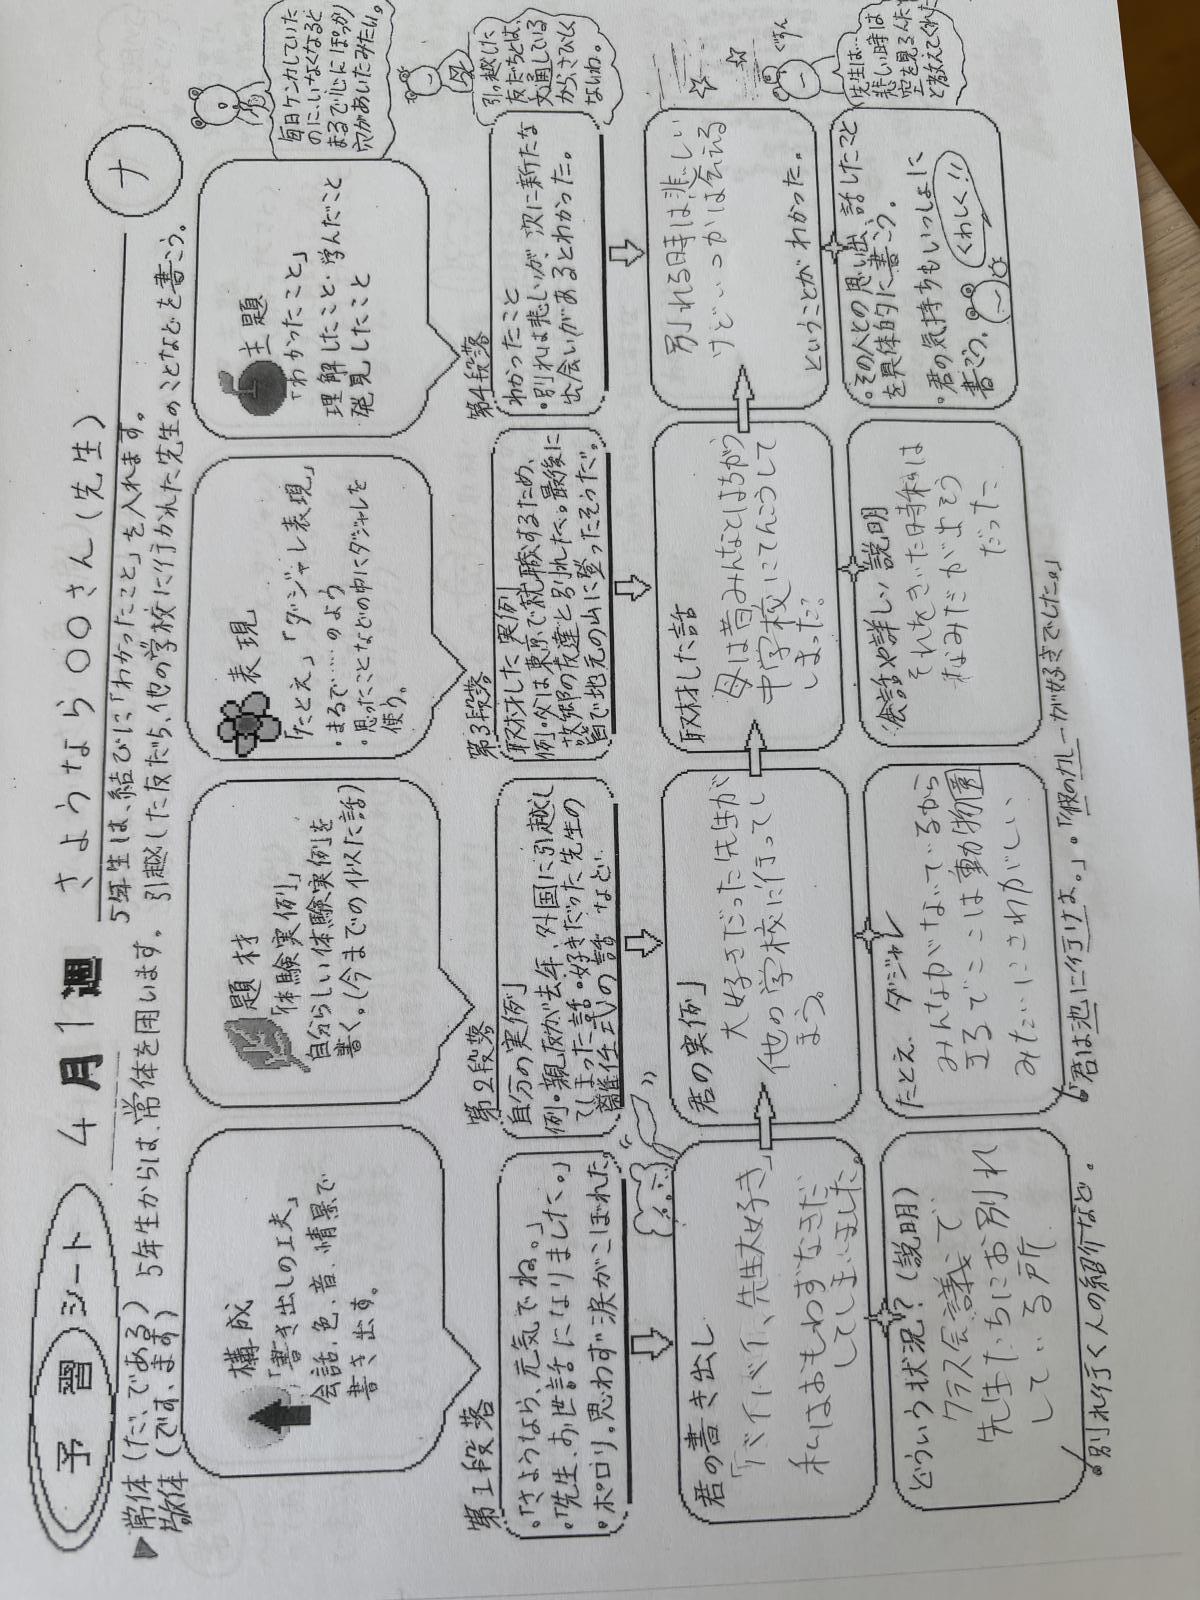 予習シート 4月1週 さようなら〇〇さん(先生) ナ
▶常体(だ、である) 5年生からは、常体を用います。
敬体(です、ます)
5年生は、結びに「わかったこと」を入れます。
引越した友だち、他の学校に行かれた先生のことなどを書こう。
構成
「書き出しの工夫」
会話、色、音、情景で
書き出す。
題材
「体験実例」
自分らしい体験実例を
書く。(今までの似た話)
表現
「たとえ」「ダジャレ表現」
・まるで……のよう
・思ったことなどの中にダジャレを
使う。
主題
「わかったこと」
理解したこと・学んだこと
発見したこと
毎日ケンカしていた
のに、いなくなると
まるで心にぽっかり
穴があいたみたい。
第1段落
・「さようなら、元気でね。」
・「先生、お世話になりました。」
・ポロリ。思わず涙がこぼれた。
第2段落
自分の実例
例・親友が去年、外国に引越し
てしまった話・好きだった先生の
離任式の話 など
第3段落
取材した実例
例・父は東京で就職するため、
故郷の友達と別れた。最後に
皆で地元の山に登ったそうだ。
第4段落
わかったこと
・別れは悲しいが、次に新たな
出会いがあるとわかった。
引っ越した
友だちとは、
文通している
から、さびしく
ないね。
君の書き出し
「バイバイ、先生大好き」
私はおもわずなきだ
してしまいました。
君の実例
大好きだった先生が
他の学校に行ってし
まう。
取材した話
母は昔みんなとはちがう
中学校にてんこうして
しまった。
別れる時は悲しい
けどいつかは会える
ということがわかった。
ぐすん
先生は…
悲しい時は
空を見るんだ
と教えてくれた
どういう状況?(説明)
クラス会議で
先生たちにお別れ
している所
たとえ、ダジャレ
みんながないているから
まるでここは動物園
みたいにさわがしい
会話や詳しい説明
それをきいた時私は
なみだが出そう
だった
・その人との思い出、話したこと
を具体的に書こう。
・君の気持ちもいっしょに
書こう。
くわしく!!
・別れ行く人の紹介など。
「君は池に行けよ。」。「仮のカレーが好きでした。」